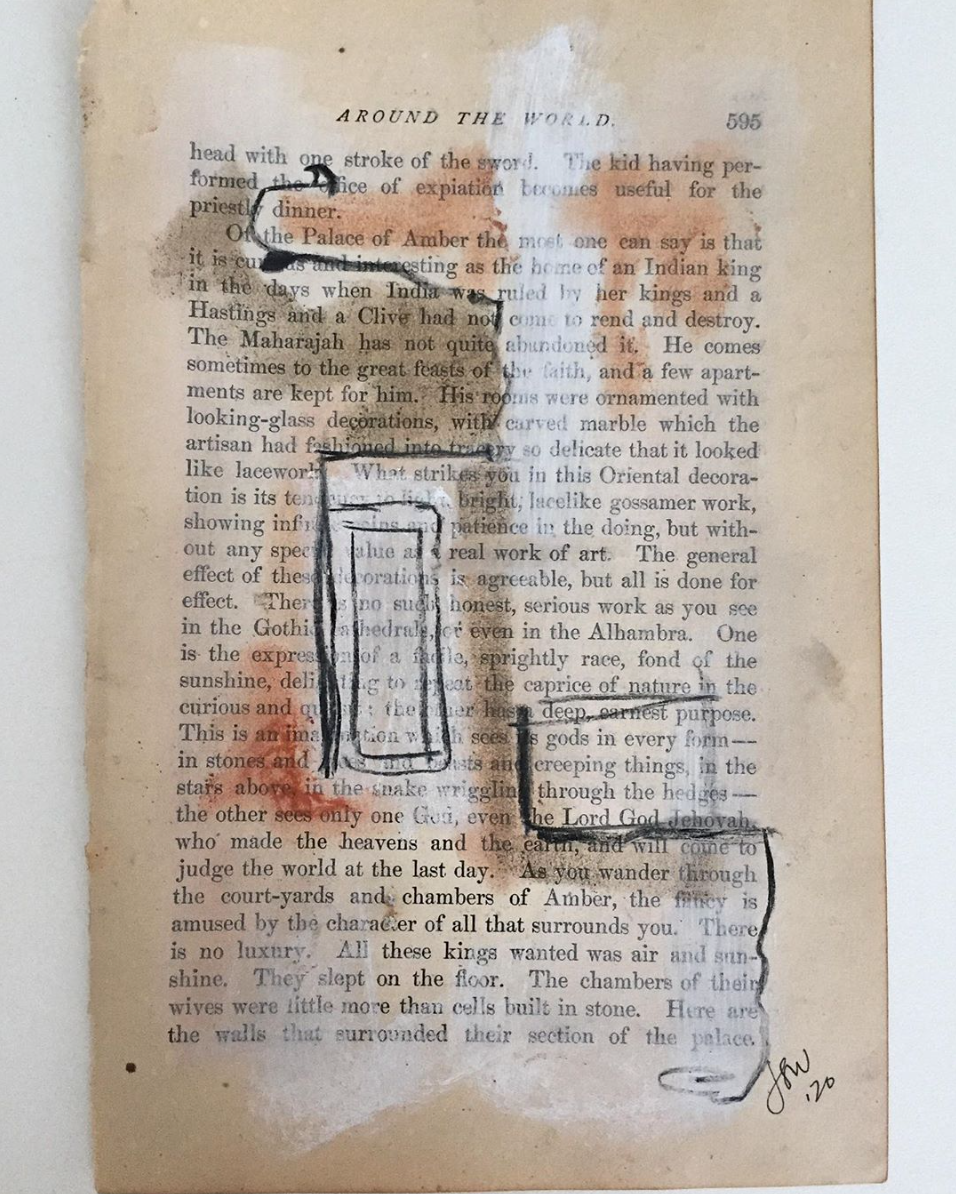 AROUND THE WORLD. 595
head with one stroke of the sword. The kid having per-
formed the office of expiation becomes useful for the
priestly dinner.
Of the Palace of Amber the most one can say is that
it is curious and interesting as the home of an Indian king
in the days when India was ruled by her kings and a
Hastings and a Clive had not come to rend and destroy.
The Maharajah has not quite abandoned it. He comes
sometimes to the great feasts of the faith, and a few apart-
ments are kept for him. His rooms were ornamented with
looking-glass decorations, with carved marble which the
artisan had fashioned into tracery so delicate that it looked
like lacework. What strikes you in this Oriental decora-
tion is its tendency to light, bright, lacelike gossamer work,
showing infinite pains and patience in the doing, but with-
out any special value as a real work of art. The general
effect of these decorations is agreeable, but all is done for
effect. There is no such honest, serious work as you see
in the Gothic cathedrals, or even in the Alhambra. One
is the expression of a facile, sprightly race, fond of the
sunshine, delighting to repeat the caprice of nature in the
curious and quaint; the other has a deep, earnest purpose.
This is an imagination which sees its gods in every form—
in stones and and beasts and creeping things, in the
stars above, in the snake wriggling through the hedges—
the other sees only one God, even the Lord God Jehovah,
who made the heavens and the earth, and will come to
judge the world at the last day. As you wander through
the court-yards and chambers of Amber, the fancy is
amused by the character of all that surrounds you. There
is no luxury. All these kings wanted was air and sun-
shine. They slept on the floor. The chambers of their
wives were little more than cells built in stone. Here are
the walls that surrounded their section of the palace.
'20